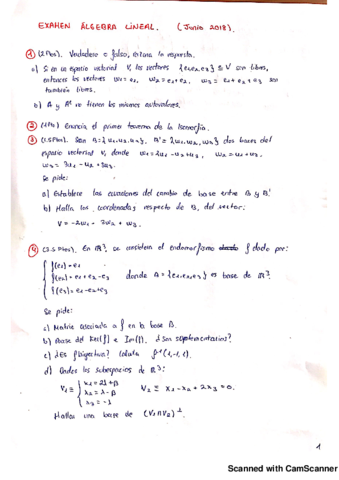 EXAMEN ÁLGEBRA LINEAL. (Junio 2018).
① (2 Ptos). Verdadero o falso, razona la respuesta.
a) Si en un espacio vectorial V, los vectores {e1, e2, e3} ⊆ V son libres,
entonces los vectores w1 = e1, w2 = e1 + e2, w3 = e1 + e2 + e3 son
también libres.
b) A y Aᵗ tienen los mismos autovalores.
② (1 Pto) Enuncia el primer teorema de la Isomorfía.
③ (1.5 Ptos). Sean B = {u1, u2, u3}, B' = {w1, w2, w3} dos bases del
espacio vectorial V, donde w1 = 2u1 - u2 + u3, w2 = u1 + u3,
w3 = 3u1 - u2 + 3u3.
Se pide:
a) Establece las ecuaciones del cambio de base entre B y B'
b) Halla las coordenadas respecto de B, del vector:
V = -2w1 - 3w2 + w3.
④ (3.5 Ptos). En ℝ³, se considera el endomorfismo f dado por:
f(e1) = e1
f(e2) = e1 + e2 - e3
f(e3) = e1 - e2 + e3
donde B = {e1, e2, e3} es base de ℝ³.
Se pide:
a) Matriz asociada a f en la base B.
b) Base del Ker(f) e Im(f). ¿Son suplementarios?
c) ¿Es f biyectiva? Calcula f⁻¹(1, -1, 1).
d) Dados los subespacios de ℝ³:
V1 ≡ { x1 = 2λ + β
x2 = λ - β
x3 = -λ
V2 ≡ x1 - x2 + 2x3 = 0.
Hallar una base de (V1 ∩ V2)⊥.
1
Scanned with CamScanner